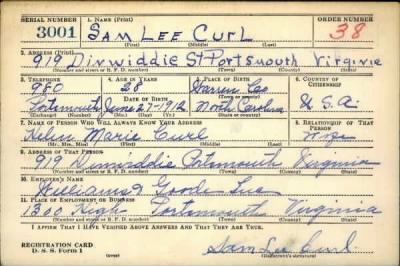 SERIAL NUMBER 1. NAME (Print) ORDER NUMBER
3001 SAM LEE CURL 38
(First) (Middle) (Last)
2. ADDRESS (Print)
919 Dinwiddie St Portsmouth Virginia
(Number and street or R. F. D. number) (Town) (County) (State)
3. TELEPHONE 4. AGE IN YEARS 5. PLACE OF BIRTH 6. COUNTRY OF CITIZENSHIP
980 28 Warren Co
DATE OF BIRTH
Portsmouth June 27-1912 North Carolina U.S.A.
(Exchange) (Number) (Mo.) (Day) (Yr.) (State or country)
7. NAME OF PERSON WHO WILL ALWAYS KNOW YOUR ADDRESS 8. RELATIONSHIP OF THAT PERSON
Helen Marie Curl Wife
(Mr., Mrs., Miss) (First) (Middle) (Last)
9. ADDRESS OF THAT PERSON
919 Dinwiddie Portsmouth Virginia
(Number and street or R. F. D. number) (Town) (County) (State)
10. EMPLOYER'S NAME
Williams Inc
11. PLACE OF EMPLOYMENT OR BUSINESS
1300 High Portsmouth Virginia
(Number and street or R. F. D. number) (Town) (County) (State)
I AFFIRM THAT I HAVE VERIFIED ABOVE ANSWERS AND THAT THEY ARE TRUE.
REGISTRATION CARD
D. S. S. Form 1 (over) Sam Lee Curl
(Registrant's signature)